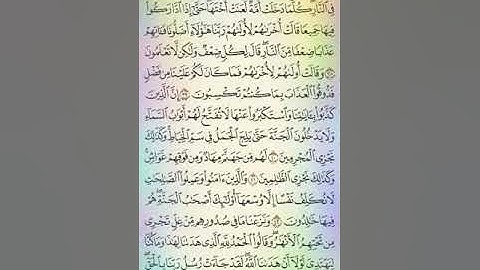 فِي ٱلنَّارِ كُلَّمَا دَخَلَتْ أُمَّةٌ لَّعَنَتْ أُخْتَهَا حَتَّىٰٓ إِذَا ٱدَّارَكُوا۟
فِيهَا جَمِيعًا قَالَتْ أُخْرَىٰهُمْ لِأُولَىٰهُمْ رَبَّنَا هَٰٓؤُلَآءِ أَضَلُّونَا فَـَٔاتِهِمْ
عَذَابًا ضِعْفًا مِّنَ ٱلنَّارِ قَالَ لِكُلٍّ ضِعْفٌ وَلَٰكِن لَّا تَعْلَمُونَ
٣٨ وَقَالَتْ أُولَىٰهُمْ لِأُخْرَىٰهُمْ فَمَا كَانَ لَكُمْ عَلَيْنَا مِن فَضْلٍ
فَذُوقُوا۟ ٱلْعَذَابَ بِمَا كُنتُمْ تَكْسِبُونَ ٣٩ إِنَّ ٱلَّذِينَ
كَذَّبُوا۟ بِـَٔايَٰتِنَا وَٱسْتَكْبَرُوا۟ عَنْهَا لَا تُفَتَّحُ لَهُمْ أَبْوَٰبُ ٱلسَّمَآءِ
وَلَا يَدْخُلُونَ ٱلْجَنَّةَ حَتَّىٰ يَلِجَ ٱلْجَمَلُ فِي سَمِّ ٱلْخِيَاطِ وَكَذَٰلِكَ
نَجْزِي ٱلْمُجْرِمِينَ ٤٠ لَهُم مِّن جَهَنَّمَ مِهَادٌ وَمِن فَوْقِهِمْ غَوَاشٍ
وَكَذَٰلِكَ نَجْزِي ٱلظَّٰلِمِينَ ٤١ وَٱلَّذِينَ ءَامَنُوا۟ وَعَمِلُوا۟ ٱلصَّٰلِحَٰتِ
لَا نُكَلِّفُ نَفْسًا إِلَّا وُسْعَهَآ أُو۟لَٰٓئِكَ أَصْحَٰبُ ٱلْجَنَّةِ هُمْ
فِيهَا خَٰلِدُونَ ٤٢ وَنَزَعْنَا مَا فِي صُدُورِهِم مِّنْ غِلٍّ تَجْرِي
مِن تَحْتِهِمُ ٱلْأَنْهَٰرُ وَقَالُوا۟ ٱلْحَمْدُ لِلَّهِ ٱلَّذِي هَدَىٰنَا لِهَٰذَا وَمَا كُنَّا
لِنَهْتَدِيَ لَوْلَآ أَنْ هَدَىٰنَا ٱللَّهُ لَقَدْ جَآءَتْ رُسُلُ رَبِّنَا بِٱلْحَقِّ